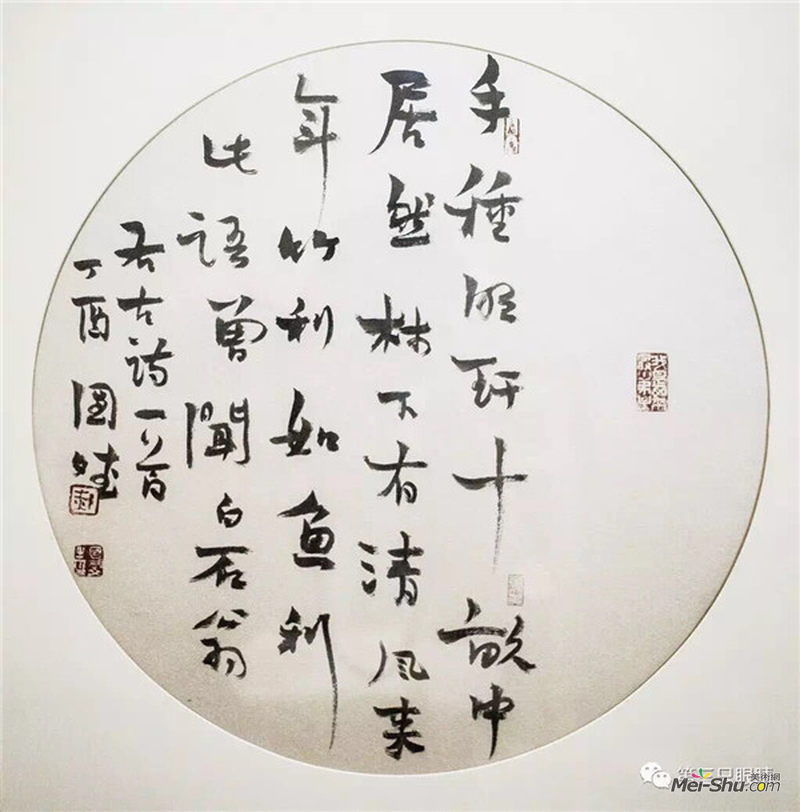 手種琅玕十畝中
居然林下有清風来
年竹利如魚利
此語曾聞白石翁
右古詩一首
丁酉
美術網
Mei-Shu.com